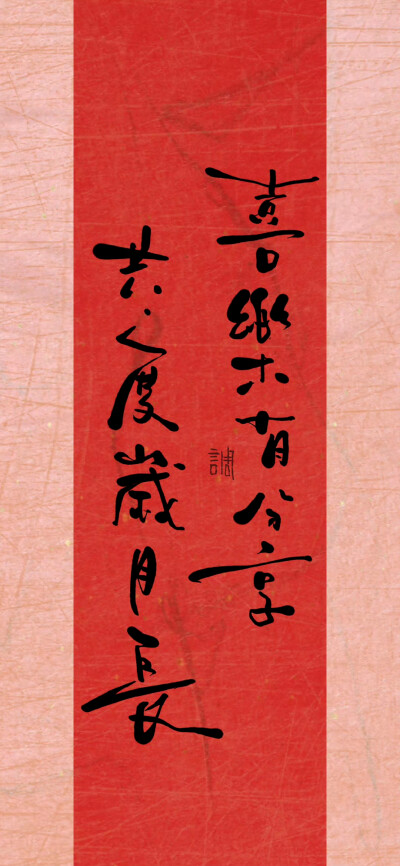 喜樂有分享
共度歲月長